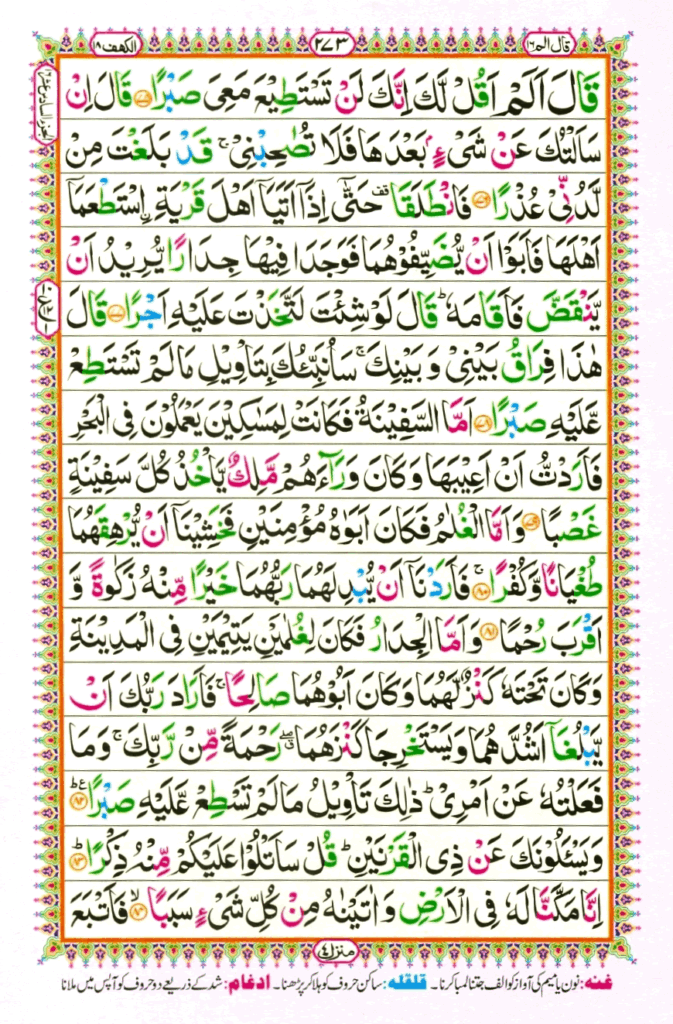 قال الم ١٦
٢٧٣
الكهف ١٨
قَالَ اَلَمْ اَقُلْ لَّكَ اِنَّكَ لَنْ تَسْتَطِيْعَ مَعِيَ صَبْرًا ﴿۷۵﴾ قَالَ اِنْ
سَاَلْتُكَ عَنْ شَيْءٍۭ بَعْدَهَا فَلَا تُصٰحِبْنِيْ ۚ قَدْ بَلَغْتَ مِنْ
لَّدُنِّيْ عُذْرًا ﴿۷۶﴾ فَانْطَلَقَا ۥ حَتّٰٓى اِذَاۤ اَتَيَاۤ اَهْلَ قَرْيَةِ ۣاسْتَطْعَمَاۤ
اَهْلَهَا فَاَبَوْا اَنْ يُّضَيِّفُوْهُمَا فَوَجَدَا فِيْهَا جِدَارًا يُّرِيْدُ اَنْ
يَّنْقَضَّ فَاَقَامَهٗ ؕ قَالَ لَوْ شِئْتَ لَتَّخَذْتَ عَلَيْهِ اَجْرًا ﴿۷۷﴾ قَالَ
هٰذَا فِرَاقُ بَيْنِيْ وَ بَيْنِكَ ۚ سَاُنَبِّئُكَ بِتَاْوِيْلِ مَا لَمْ تَسْتَطِعْ
عَّلَيْهِ صَبْرًا ﴿۷۸﴾ اَمَّا السَّفِيْنَةُ فَكَانَتْ لِمَسٰكِيْنَ يَعْمَلُوْنَ فِي الْبَحْرِ
فَاَرَدْتُّ اَنْ اَعِيْبَهَا وَ كَانَ وَرَآءَهُمْ مَّلِكٌ يَّاْخُذُ كُلَّ سَفِيْنَةٍ
غَصْبًا ﴿۷۹﴾ وَ اَمَّا الْغُلٰمُ فَكَانَ اَبَوٰهُ مُؤْمِنَيْنِ فَخَشِيْنَاۤ اَنْ يُّرْهِقَهُمَا
طُغْيَانًا وَّ كُفْرًا ﴿۸۰﴾ۚ فَاَرَدْنَاۤ اَنْ يُّبْدِلَهُمَا رَبُّهُمَا خَيْرًا مِّنْهُ زَكٰوةً وَّ
اَقْرَبَ رُحْمًا ﴿۸۱﴾ وَ اَمَّا الْجِدَارُ فَكَانَ لِغُلٰمَيْنِ يَتِيْمَيْنِ فِي الْمَدِيْنَةِ
وَ كَانَ تَحْتَهٗ كَنْزٌ لَّهُمَا وَ كَانَ اَبُوْهُمَا صَالِحًا ۚ فَاَرَادَ رَبُّكَ اَنْ
يَّبْلُغَاۤ اَشُدَّهُمَا وَ يَسْتَخْرِجَا كَنْزَهُمَا ۖ رَحْمَةً مِّنْ رَّبِّكَ ۚ وَ مَا
فَعَلْتُهٗ عَنْ اَمْرِيْ ؕ ذٰلِكَ تَاْوِيْلُ مَا لَمْ تَسْطِعْ عَّلَيْهِ صَبْرًا ﴿۸۲﴾ؕ
وَ يَسْـَٔلُوْنَكَ عَنْ ذِي الْقَرْنَيْنِ ؕ قُلْ سَاَتْلُوْا عَلَيْكُمْ مِّنْهُ ذِكْرًا ﴿۸۳﴾ؕ
اِنَّا مَكَّنَّا لَهٗ فِي الْاَرْضِ وَ اٰتَيْنٰهُ مِنْ كُلِّ شَيْءٍ سَبَبًا ﴿۸۴﴾ۙ فَاَتْبَعَ
منزل ٤
غنه: نون یا میم کی آواز کو الف جتنا لمبا کرنا۔ قلقله: ساکن حروف کو ہلا کر پڑھنا۔ ادغام: شد کے ذریعے دو حروف کو آپس میں ملانا